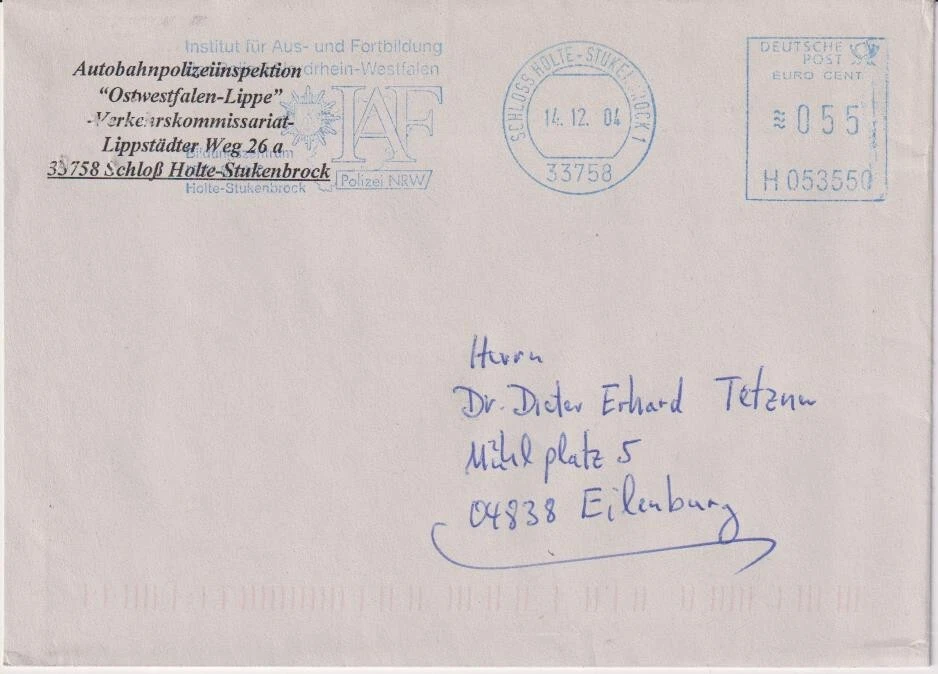 Institut für Aus- und Fortbildung
der Polizei Nordrhein-Westfalen
Autobahnpolizeiinspektion
“Ostwestfalen-Lippe”
-Verkehrskommissariat-
Lippstädter Weg 26 a
33758 Schloß Holte-Stukenbrock
Bildungszentrum
Holte-Stukenbrock
IAF
Polizei NRW
SCHLOSS HOLTE-STUKENBROCK 1
14.12.04
33758
DEUTSCHE
POST
EURO CENT
≋055
H 053550
Herrn
Dr. Dieter Erhard Tetzner
Mühlplatz 5
04838 Eilenburg